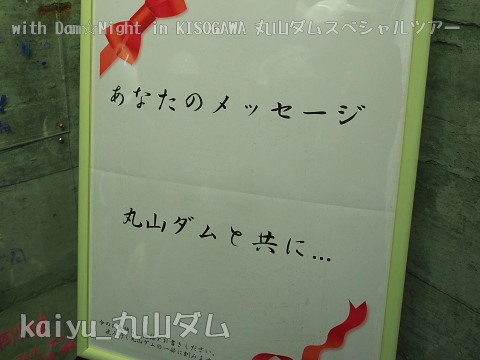 with Dam☆Night in KISOGAWA 丸山ダムスペシャルツアー
あなたのメッセージ
丸山ダムと共に…
kaiyu_丸山ダム